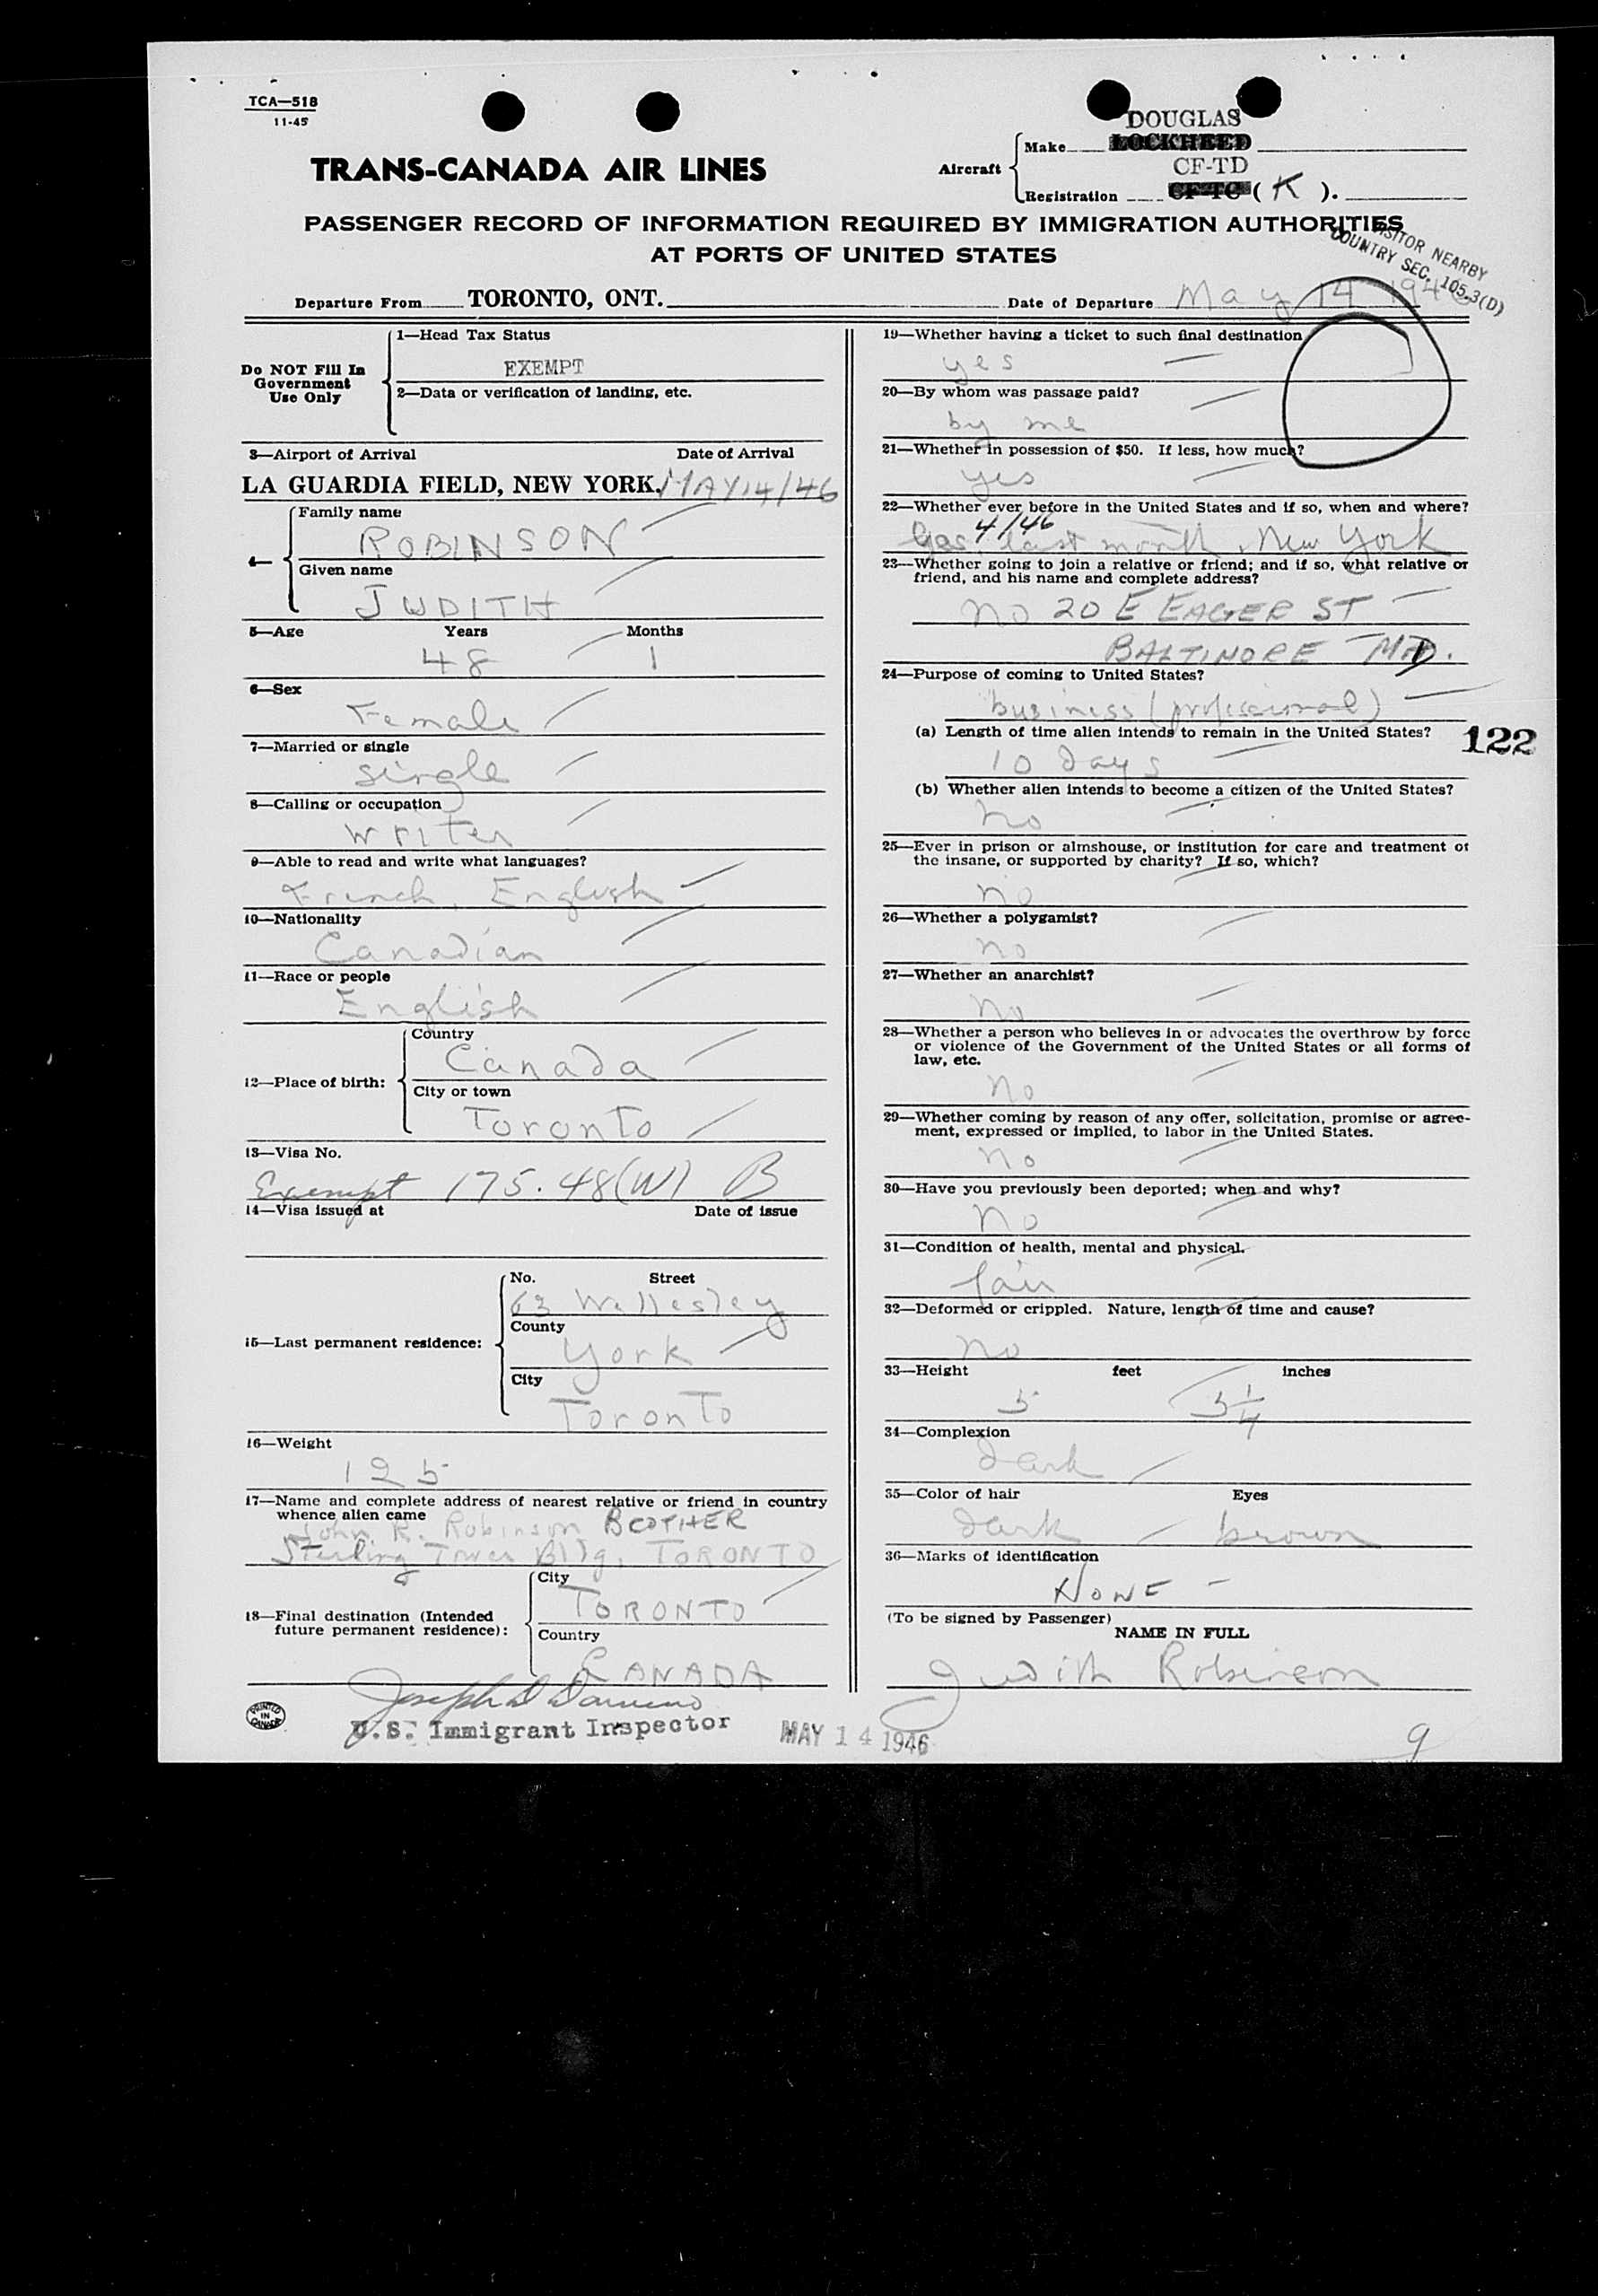 TCA—518
11-45
TRANS-CANADA AIR LINES
Aircraft
DOUGLAS
Make LOCKHEED
CF-TD
Registration CF-TC ( K ).
PASSENGER RECORD OF INFORMATION REQUIRED BY IMMIGRATION AUTHORITIES
AT PORTS OF UNITED STATES
VISITOR NEARBY
COUNTRY SEC. 105.3(D)
Departure From TORONTO, ONT.
Date of Departure May 14 1946
Do NOT Fill In
Government
Use Only
1—Head Tax Status
EXEMPT
2—Data or verification of landing, etc.
3—Airport of Arrival Date of Arrival
LA GUARDIA FIELD, NEW YORK. MAY 14/46
4—
Family name
ROBINSON
Given name
JUDITH
5—Age Years Months
48 1
6—Sex
Female
7—Married or single
single
8—Calling or occupation
writer
9—Able to read and write what languages?
French, English
10—Nationality
Canadian
11—Race or people
English
12—Place of birth:
Country
Canada
City or town
Toronto
13—Visa No.
Exempt 175.48(W) B
14—Visa issued at Date of issue
15—Last permanent residence:
No. Street
63 Wellesley
County
York
City
Toronto
16—Weight
125
17—Name and complete address of nearest relative or friend in country
whence alien came
John R. Robinson BROTHER
Sterling Tower Bldg. TORONTO
18—Final destination (Intended
future permanent residence):
City
TORONTO
Country
CANADA
Joseph D
U.S. Immigrant Inspector MAY 14 1946
PRINTED
IN
CANADA
19—Whether having a ticket to such final destination
yes
20—By whom was passage paid?
by me
21—Whether in possession of $50. If less, how much?
yes
22—Whether ever before in the United States and if so, when and where?
4/46
Yes, last month, New York
23—Whether going to join a relative or friend; and if so, what relative or
friend, and his name and complete address?
No 20 E EAGER ST
BALTIMORE MD.
24—Purpose of coming to United States?
business (professional)
(a) Length of time alien intends to remain in the United States?
122
10 days
(b) Whether alien intends to become a citizen of the United States?
no
25—Ever in prison or almshouse, or institution for care and treatment of
the insane, or supported by charity? If so, which?
no
26—Whether a polygamist?
no
27—Whether an anarchist?
No
28—Whether a person who believes in or advocates the overthrow by force
or violence of the Government of the United States or all forms of
law, etc.
No
29—Whether coming by reason of any offer, solicitation, promise or agree-
ment, expressed or implied, to labor in the United States.
No
30—Have you previously been deported; when and why?
No
31—Condition of health, mental and physical.
fair
32—Deformed or crippled. Nature, length of time and cause?
No
33—Height feet inches
5 3 1/4
34—Complexion
dark
35—Color of hair Eyes
dark brown
36—Marks of identification
NONE
(To be signed by Passenger)
NAME IN FULL
Judith Robinson
9